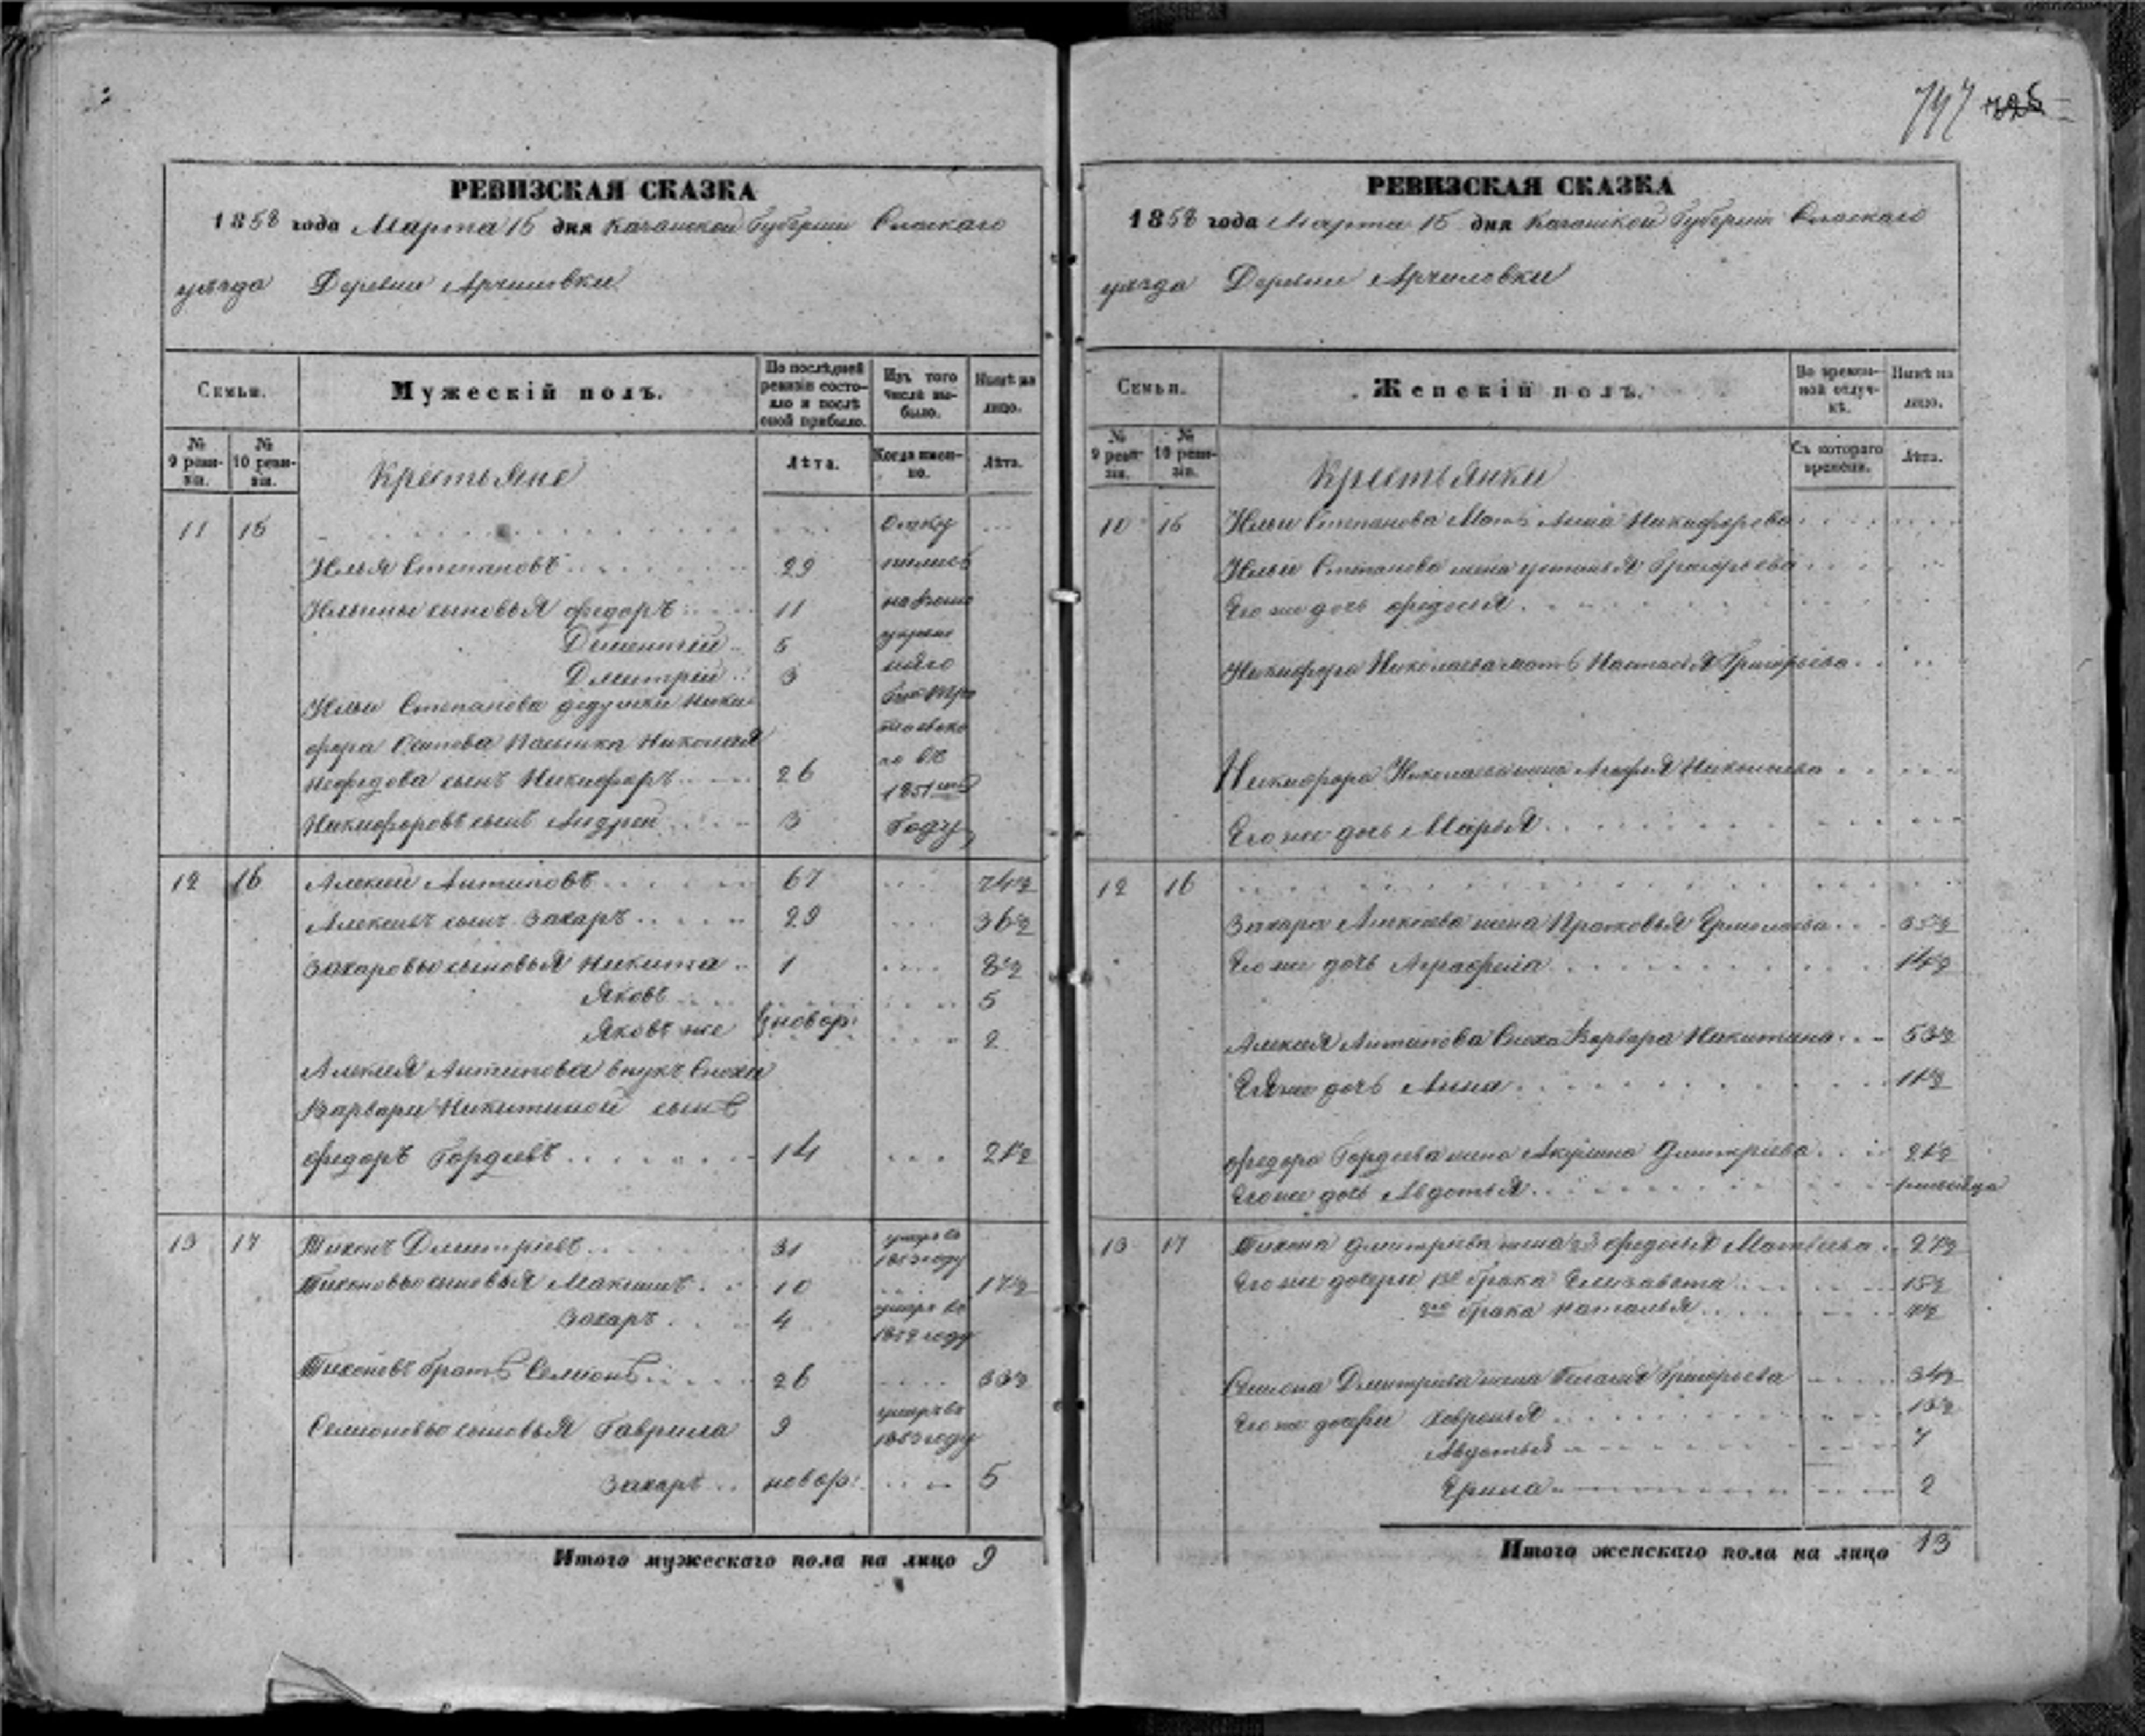 747
РЕВИЗСКАЯ СКАЗКА
1858 года Марта 15 дня Казанской Губернии Спаскаго
уѣзда Деревни Арчиловки
Семьи.
Мужескій полъ.
По послѣдней ревизіи состояло и послѣ оной прибыло.
Изъ того числа выбыло.
Нынѣ на лицо.
№ 9 ревизіи.
№ 10 ревизіи.
Крестьяне
Лѣта.
Когда именно.
Лѣта.
11 15
Илья Степановъ 29
Ильины сыновья Федоръ 11
Дементій 5
Дмитрій 3
Ильи Степанова дедушки Ники
фора Николая
Нефедова сынъ Никифоръ 26
Никифоровъ сынъ Андрей 3
1851 году
12 16 Алексей Антиповъ 67 74½
Алексевъ сынъ Захаръ 29 36½
Захаровы сыновья Никита 1 8½
Яковъ 5
Яковъ же новор: 2
Алексея Антипова внукъ Снохи
Варвары Никитиной сынъ
Федоръ Гордеевъ 14 21½
13 17 Тихонъ Дмитріевъ 31 умеръ въ 1853 году
Тихоновы сыновья Максимъ 10 17½
Захаръ 4 умеръ въ 1852 году
Тихоновъ братъ Семіонъ 26 33½
Семіоновы сыновья Гаврила 9 умеръ въ 1853 году
Захаръ новор: 5
Итого мужескаго пола на лицо 9
РЕВИЗСКАЯ СКАЗКА
1858 года Марта 15 дня Казанской Губерніи Спаскаго
уѣзда Деревни Арчиловки
Семьи.
Женскій полъ.
Во временной отлучкѣ.
Нынѣ на лицо.
№ 9 ревизіи.
№ 10 ревизіи.
Крестьянки
Съ котораго времени.
Лѣта.
15 Ильи Степанова Мать Анна Никифорова
Ильи Степанова жена устинья Григорьева
Его же дочь Федосья
Никифора Николаева мать Настасья Григорьева
Никифора Николаева жена
Его же дочь Марья
12 16
Захара Алексеева жена Прасковья Ермолаева 35½
Его же дочь Аграфена 14½
Алексея Антипова Сноха Варвара Никитина 53½
Ея же дочь Анна 11½
Федора Гордеева жена Акулина Дмитріева 21½
Его же дочь Авдотья
13 17 Тихона Дмитріева жена Федосья Матвеева 27½
Его же дочери брака Елизавета 15½
2го брака Наталья
Семіона Дмитріева жена Пелагея Григорьева 34½
Его же дочери Хевронья 13½
Авдотья 7
Ерина 2
Итого женскаго пола на лицо 13